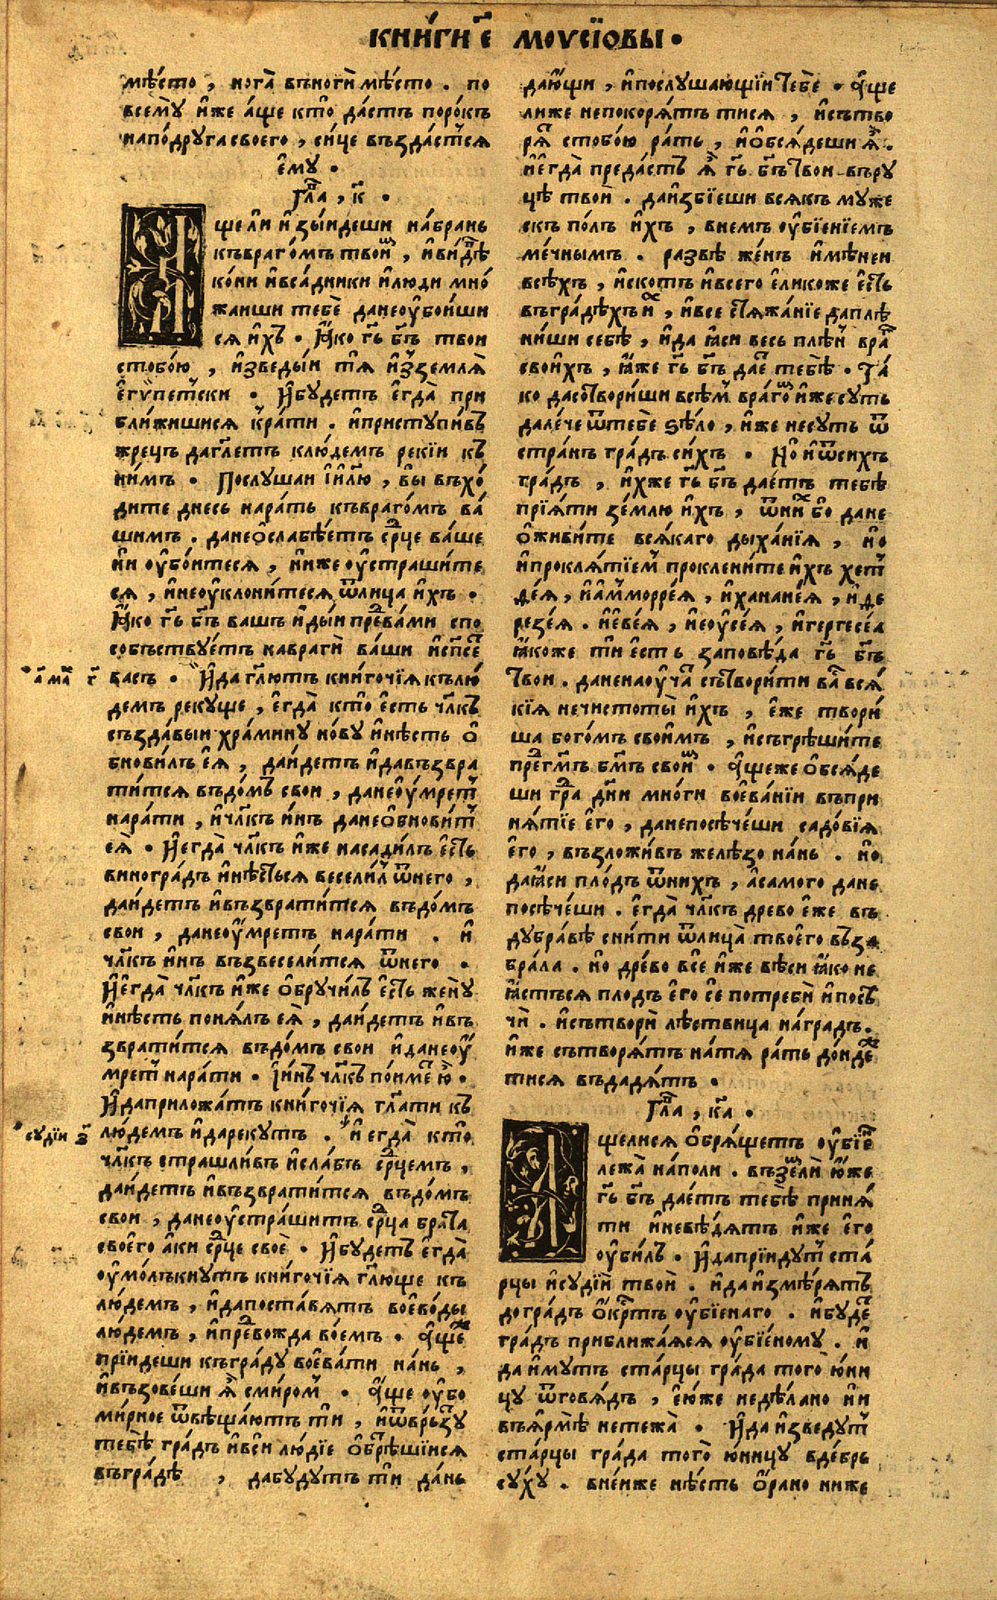 КНИ́ГИ Е҃ МОѴСІОВЫ ·
мѣ́сто , нога̀ въногѝ мѣ́сто . по
всемꙋ̀ и҆́же а́ще кто̀ да́стъ поро́къ
напо́друга своего , си́це въздастся
е҆мꙋ̀ ·
Гла̑ , к҃ ·
А҆ще ли и҆зы́идеши на́брань
къврагомъ твои̑ , и҆ви́диши
ко́ни и҆вса́дники и҆лю́ди мно́
жаиши тебѐ данеоубои́ши
ся и҆хъ · Ꙗ҆́ко гь҃ бг҃ъ твои
стобо́ю , и҆зведы́и тя̀ и҆зъземля̀
е҆гѵ́петски · И҆бу́детъ е҆гда̀ при
бли́жишися кра́ти . и҆приступи́въ
жрецъ даглетъ клю́демъ рекі́и къ
ни́мъ · Послушаи і҆и҃лю , вы̀ въхо́
дите днесь нара́ть къврагомъ ва́
шимъ . данеослабѣ́етъ ср҃це ва́ше
ни оубо́итеся , ниже оустраши́те
ся , и҆неоуклони́теся ѿлица и҆́хъ ·
Ꙗ҆́ко гь҃ бг҃ъ вашъ и҆ды́и предва́ми спо
собьству́етъ навраги̑ ва́ши и҆спсе́
васъ · И҆да гл҃ютъ книгочі́я кълю́
демъ рекуще , е҆гда̀ кто̀ е҆сть чл҃къ
създа́выи хра́мину но́ву и҆нѣсть ѻ
бнови́лъ е҆я̀ , да и҆́детъ и҆давъзвра
ти́тся въдо́мъ свои , данеоу҆́мретъ
нара́ти , и҆чл҃къ и҆нъ данеѻбнови́тъ
е҆я̀ · И҆егда̀ чл҃къ и҆́же насади́лъ е҆сть
виногра́дъ и҆нѣ́стъся весели́л ѿнего ,
даи҆́детъ и҆възврати́тся въдо́мъ
свои , данеоу҆́мретъ нара́ти . и҆
чл҃къ и҆нъ възвесели́тся ѿнего ·
И҆егда̀ чл҃къ и҆́же ѻбручи́лъ е҆сть жену̀
и҆нѣсть поня́лъ е҆я̀ , даи҆́детъ и҆въ
звратится въдо́мъ свои и҆данеоу҆
мретъ нара́ти · І҆и́нъ чл҃къ по́иметъ ю҆ ·
И҆даприложа́тъ книгочі́я гл҃ати къ
лю́демъ и҆дарекутъ . и҆егда̀ кто̀
чл҃къ страшли́въ и҆сла́бъ ср҃цемъ ,
даи҆́детъ и҆възврати́тся въдо́мъ
свои , данеоу҆стра́шитъ ср҃ца бра́та
своего а҆ки ср҃це своѐ · И҆бу́детъ е҆гда̀
оу҆мо́лъкнутъ книгочі́я гл҃юще къ
лю́демъ , и҆дапоста́вятъ воево́ды
лю́демъ , и҆превожда во́емъ · А҆́ще
прі́идеши къгра́ду воева́ти на́нь ,
и҆възове́ши ꙗ҆̀ смиромъ · А҆́ще оу҆бо
ми́рное ѿвѣща́ютъ ти̑ , и҆ѿве́рзу
тебѣ̀ гра́дъ и҆вси лю́діе ѻбрѣ́тшіися
въгра́дѣ , дабудутъ ти̑ да́нь
а҆ ма҃к г҃
судіи з҃
даю́щи , и҆послушающіи тебѐ · А҆́ще
лиже непокоря́тъ тися , и҆сътво
ря́ стобо́ю ра́ть , и҆ѻбся́деши ꙗ҆̀ .
и҆егда̀ преда́стъ ꙗ҆̀ гь҃ бг҃ъ твои въру
цѣ твои̑ . даи҆збіеши всякъ муже
скъ по́лъ и҆́хъ , внемъ оу҆біеніемъ
ме́чнымъ . развѣ же́нъ и҆имѣнеи
всѣхъ , и҆скотъ и҆всего е҆ликоже е҆сть
въгра́дѣхъ и҆х , и҆все стяжа́ніе заплѣ
ни́ши себѣ̀ , и҆да ꙗ҆си весь плѣ́н вра̑
свои́хъ , ꙗ҆́же гь҃ бг҃ъ дае тебѣ̀ · Та́
ко дасотвори́ши всѣм враго̑ и҆́же суть
дале́че ѿтебѐ ѕѣло , и҆́же несуть ѿ
стра́нъ гра́дъ си́хъ · Но̀ и҆ѿсихъ
гра́дъ , и҆́хже гь҃ бг҃ъ дае́тъ тебѣ̀
прія́ти зе́млю и҆́хъ , ѿни́х бо дане
ѻживи́те вся́каго дыха́нія , но̀
и҆прокля́тіем проклени́те и҆́хъ хет
де́я , и҆а҆ммоРре́я , и҆ханане́я , и҆фе
резе́я . и҆еве́я , и҆еоусе́я , и҆гергесе́а
ꙗ҆́коже ти̑ е҆сть заповѣда гь҃ бг҃ъ
Твои . даненаоу҆ча̑ сътвори́ти ва̑ вся́
кія нечистоты̀ и҆́хъ , е҆́же твори́
ша бого́мъ свои́мъ , и҆съгрѣши́те
пред гм҃ъ бг҃мъ свои̑ · А҆́щеже ѻбся́де
ши гра̑ дн҃и мно́ги воева́ніи въпри
ня́тіе е҆го , данепосѣче́ши садо́вія
е҆го , възложи́въ желѣ́зо на́нь . но̀
даꙗ҆си пло́дъ ѿнихъ , а҆самого дане
посѣче́ши . е҆гда̀ чл҃къ древо е҆́же въ
дубра́вѣ сни́ти ѿлица̀ твоего въз
брала . но̀ дре́во все и҆́же вѣси ꙗ҆́ко не
ꙗ҆стъся плодъ е҆го се потребѝ и҆посѣ
чѝ . и҆сътворѝ лѣствица на́градъ .
и҆́же сътворя́тъ на́тя ра́ть до́ндеже
тися въдадя́тъ ·
Гла̑ , ка҃ ·
А҆щелися ѻбря́щетъ оу҆біе́
лежа̀ на́поли . възе́мли ю҆́же
гь҃ бг҃ъ дае́тъ тебѣ̀ приня́
ти и҆невѣдятъ и҆́же е҆го
оу҆би́лъ · И҆дапрі́идутъ ста́
рцы и҆судіи̑ твои̑ . и҆да и҆змѣря́тъ
догра́дъ ѻ҆́крстъ оу҆біенаго . и҆бу́де
гра́дъ приближа́яся оу҆біеному . и҆
да и҆мутъ ста́рцы гра́да того ю҆́ни
цу ѿговя́дъ , е҆ю́же недѣ́лано ни
въꙗ҆рмѣ̀ нетежа̀ · И҆да и҆зведутъ
ста́рцы гра́да того̀ ю҆́ницу вде́брь
суху . внеиже нѣсть ѻ҆́рано ниже